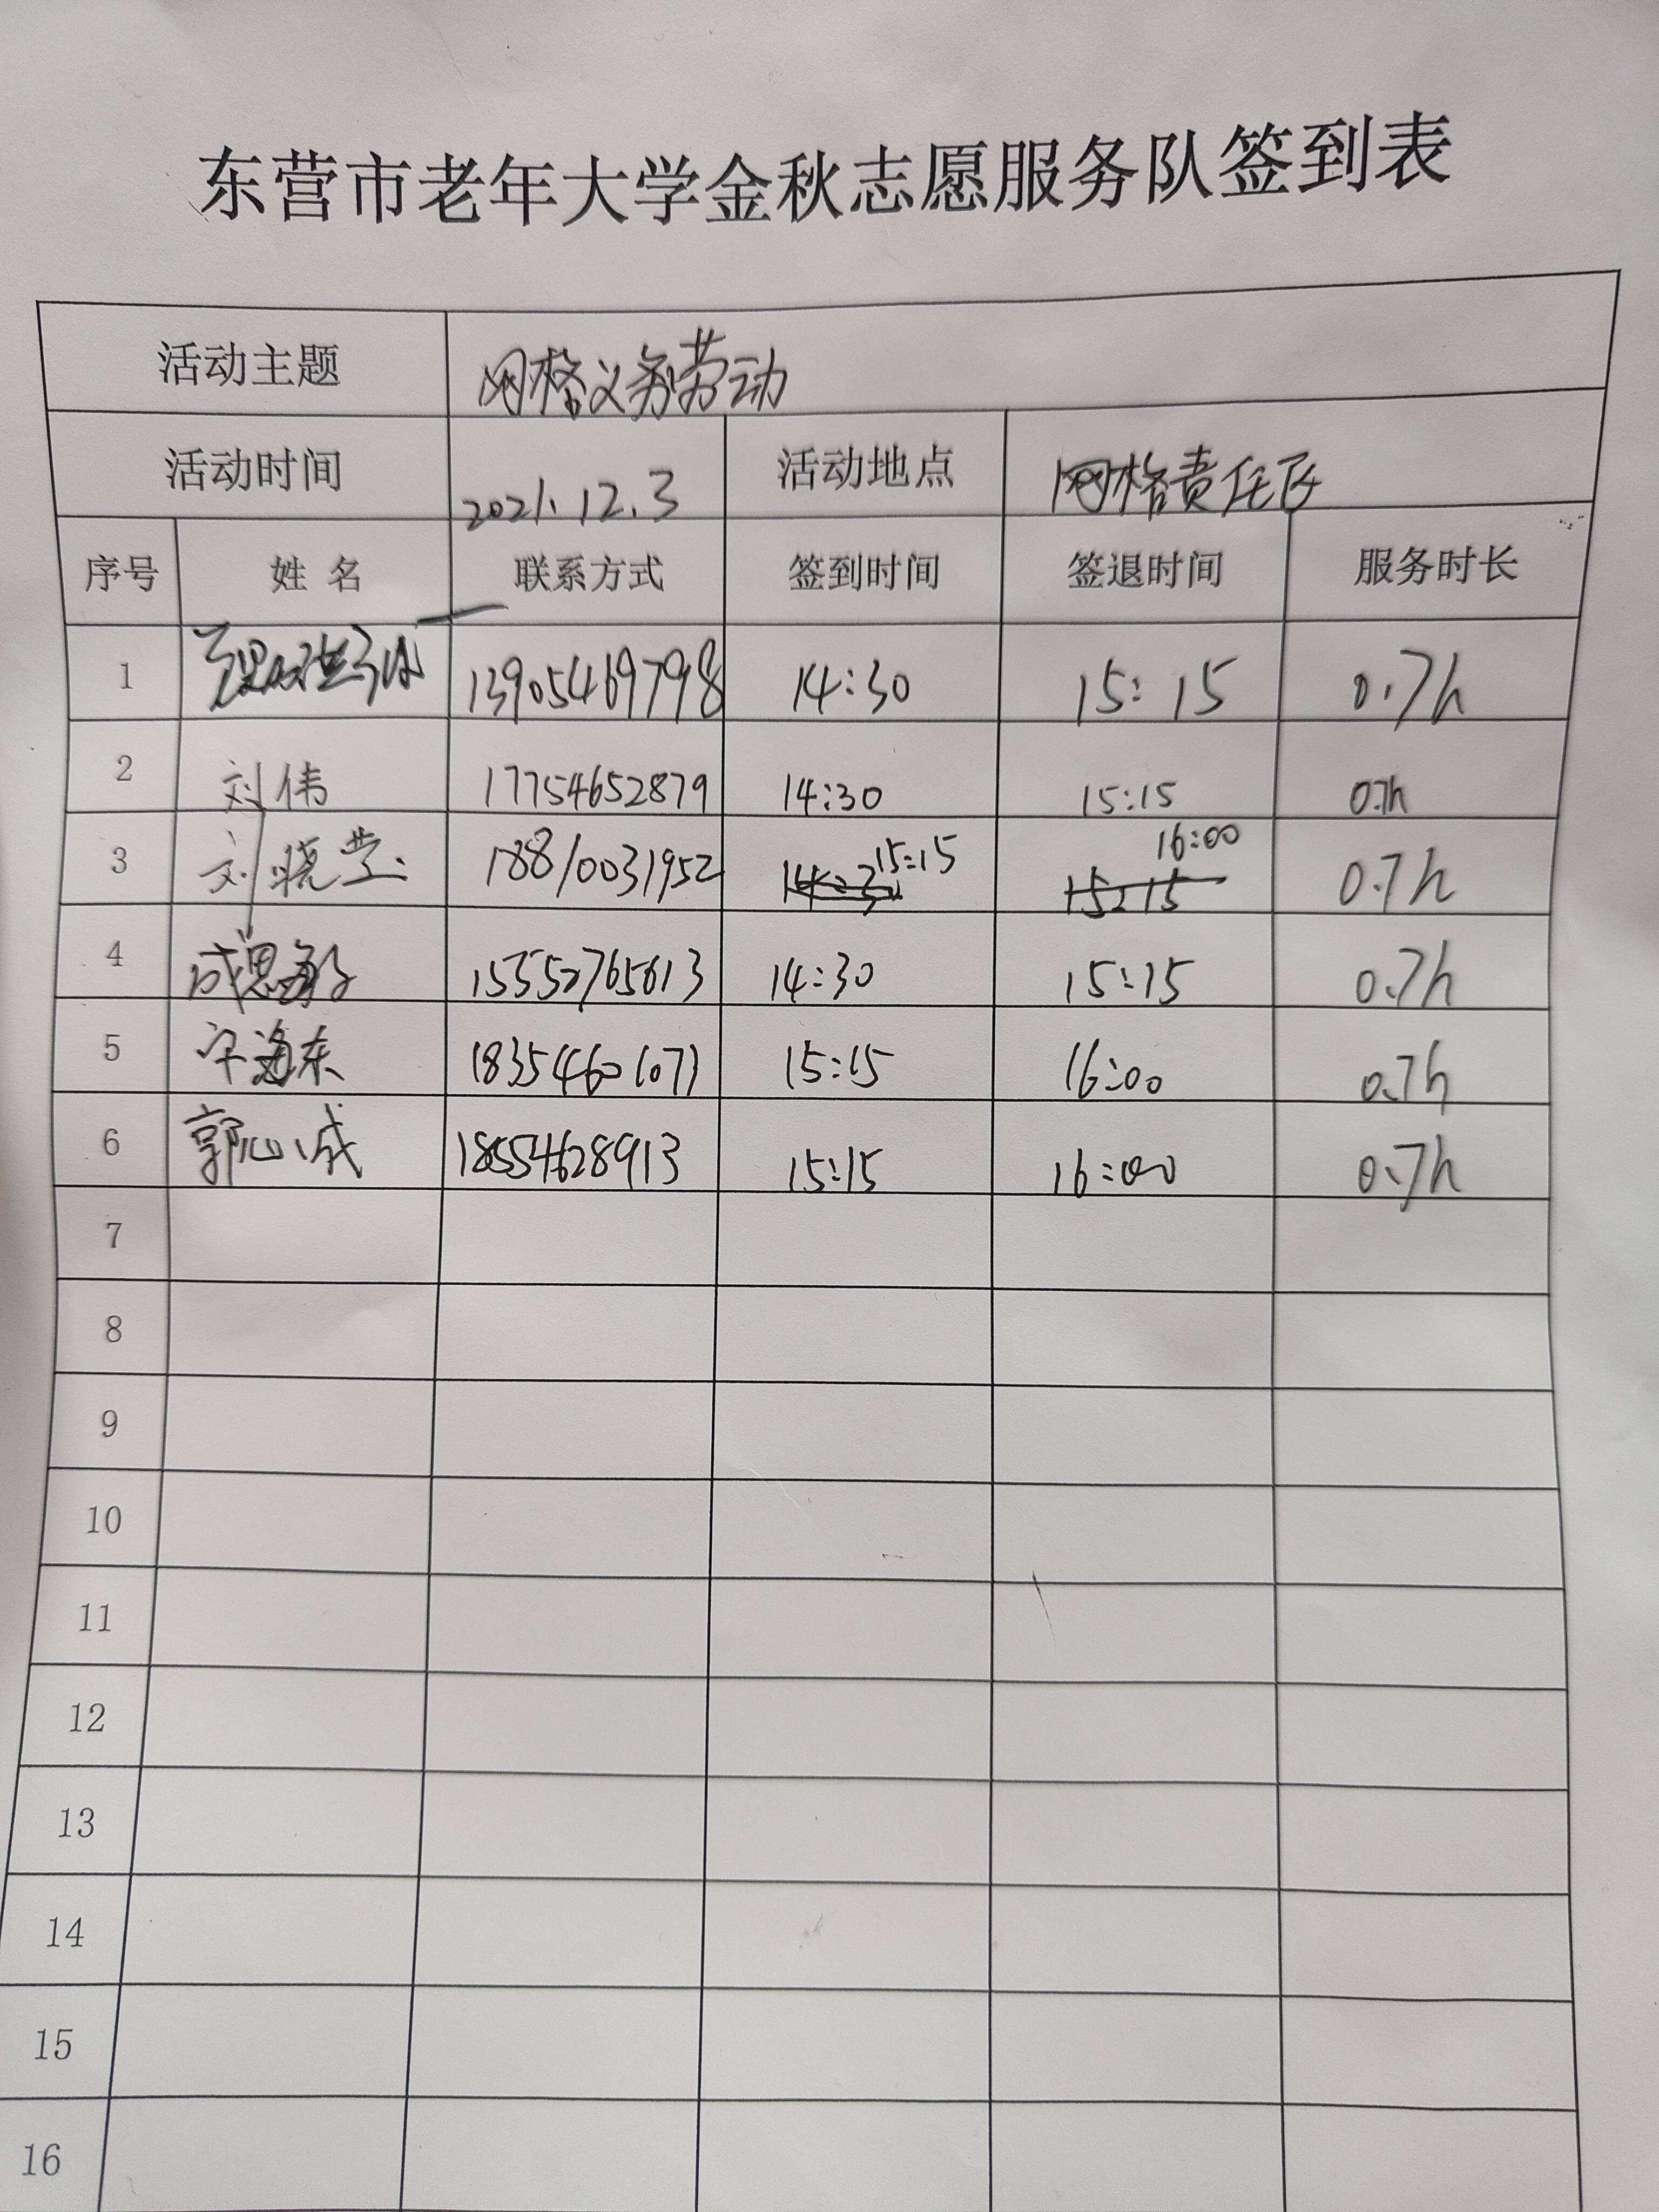 东营市老年大学金秋志愿服务队签到表
活动主题 网格义务劳动
活动时间 2021.12.3 活动地点 网格责任区
序号 姓名 联系方式 签到时间 签退时间 服务时长
1 13905469798 14:30 15:15 0.7h
2 刘伟 17754652879 14:30 15:15 0.7h
3 刘晓莹 18810031952 15:15 16:00 0.7h
4 15:15 14:30 0.7h
5 海东 18354601071 15:15 16:00 0.7h
6 郭心诚 18554628913 15:15 16:00 0.7h
7
8
9
10
11
12
13
14
15
16